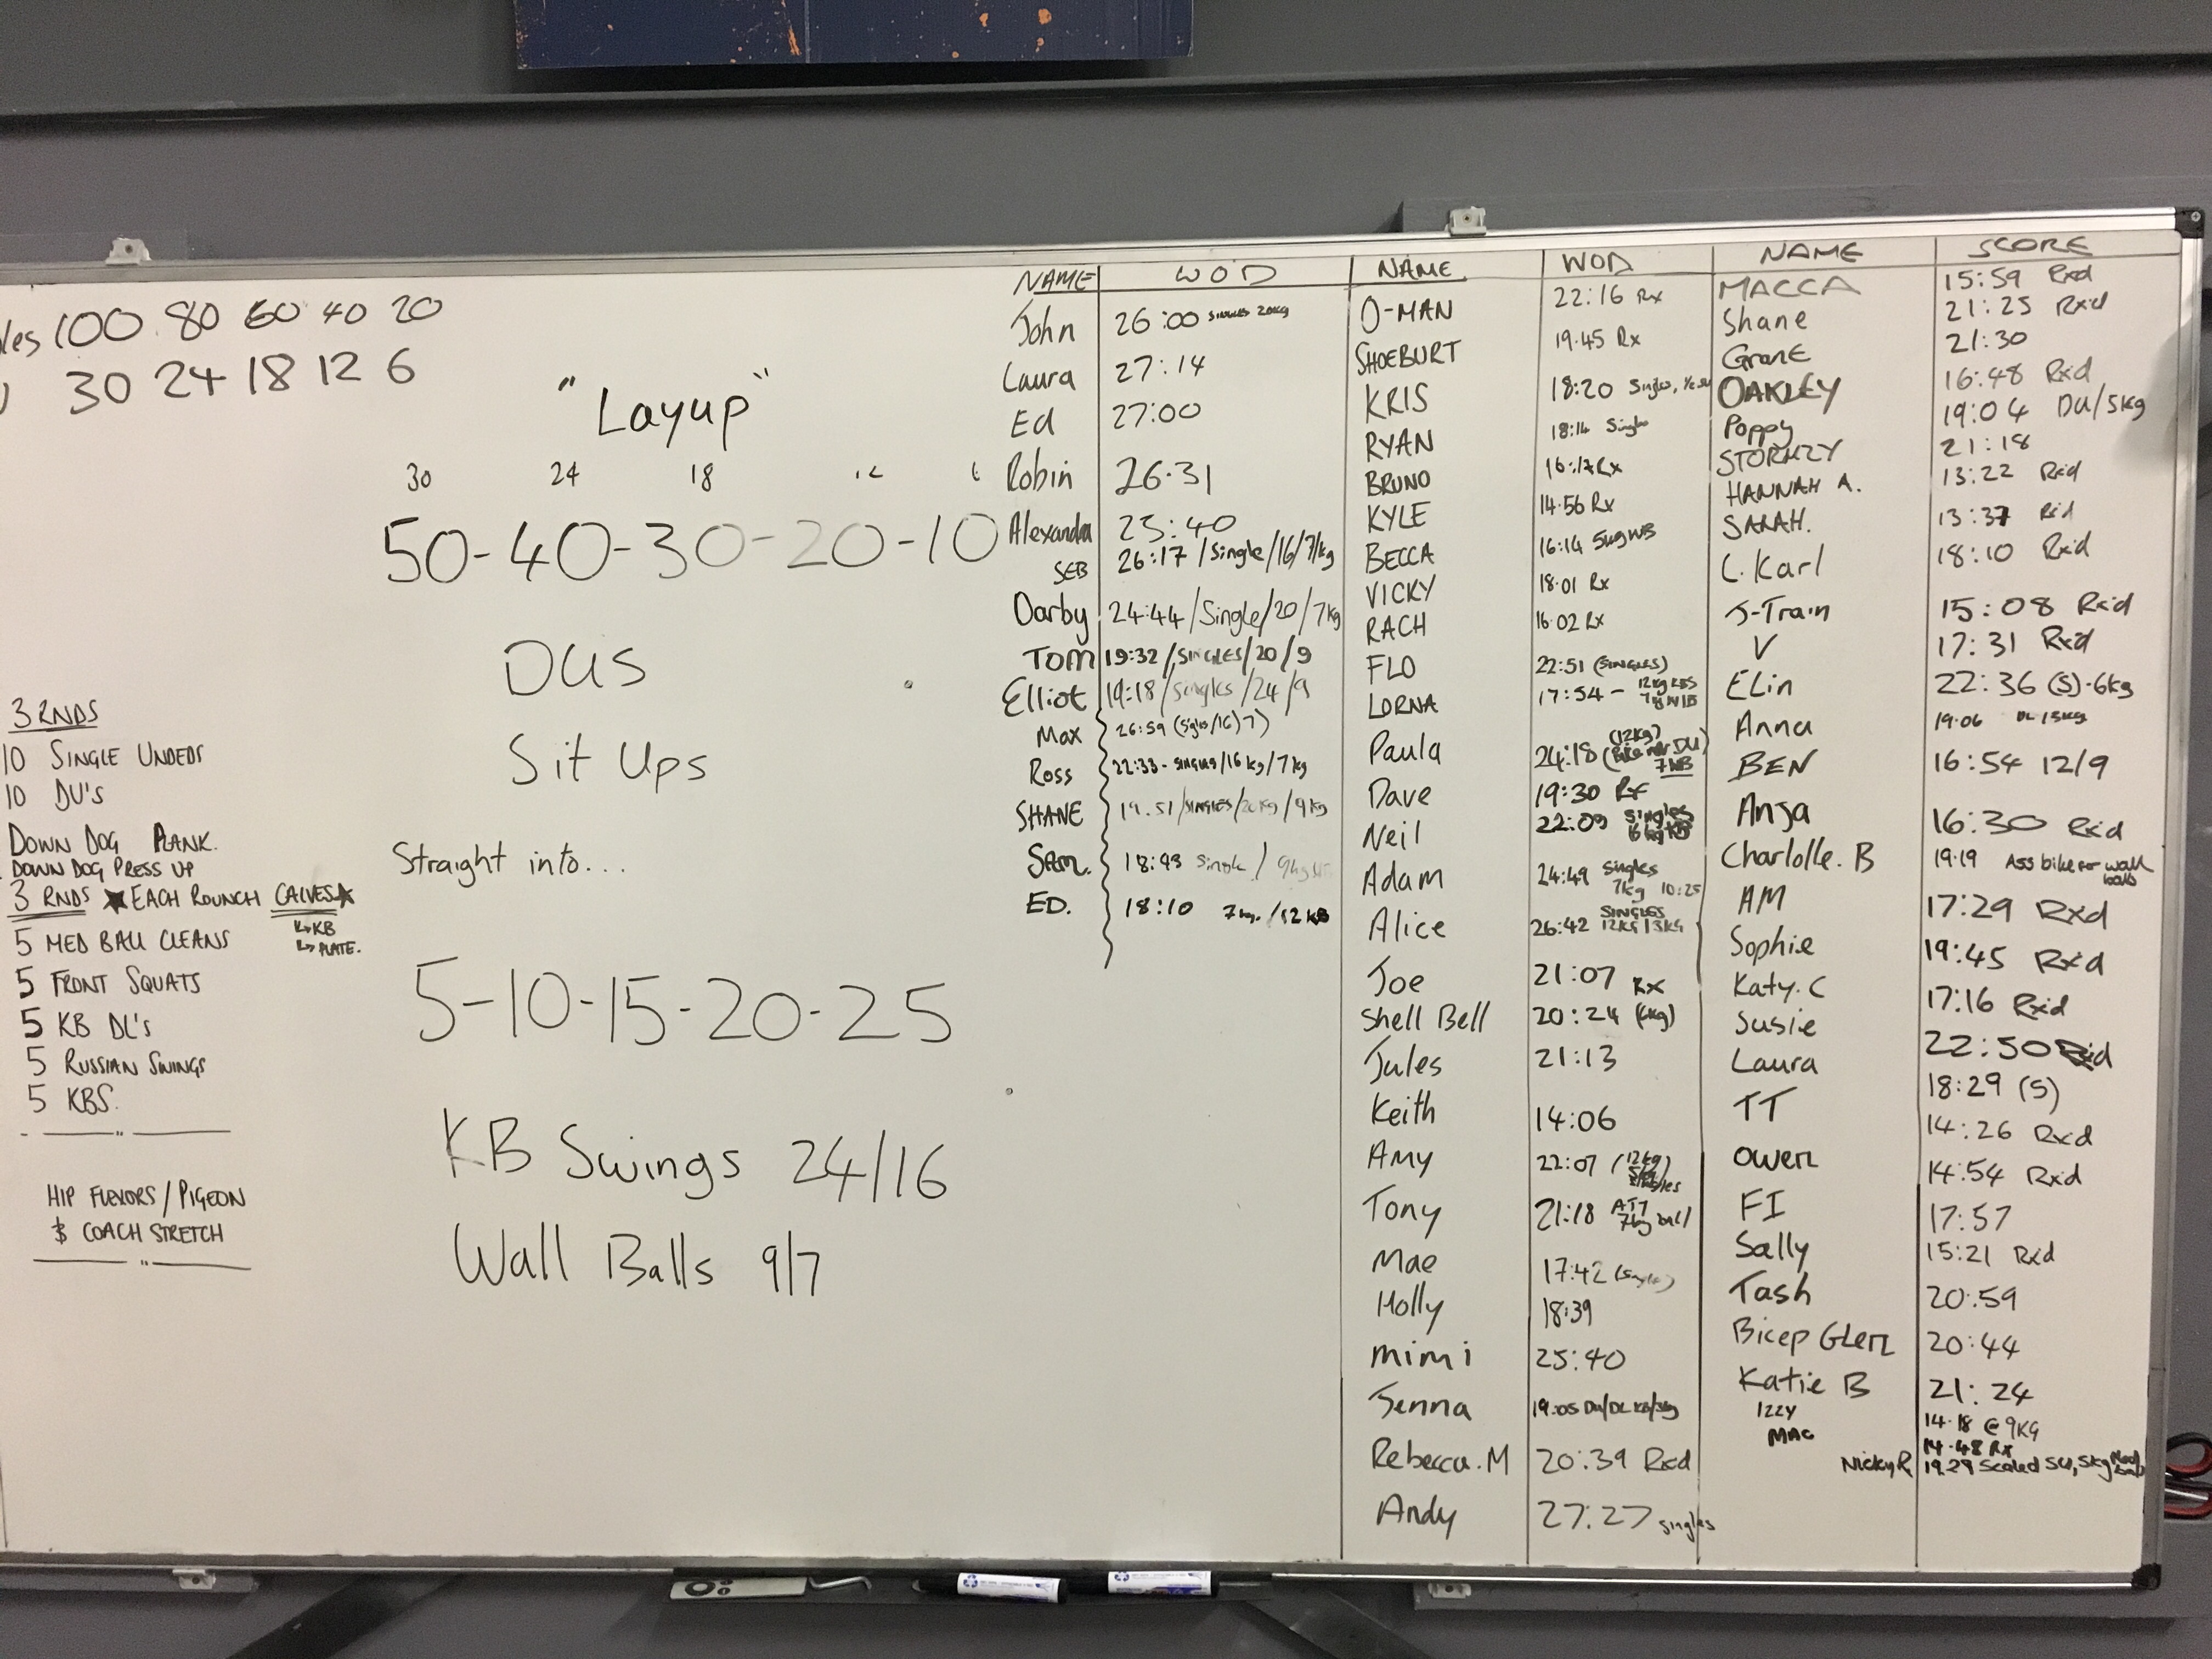 100 80 60 40 20
30 24 18 12 6
"Layup"
30 24 18 12
50-40-30-20-10
DUS
Sit Ups
Straight into...
5-10-15-20-25
KB Swings 24/16
Wall Balls 9/7
3 RNDS
10 SINGLE UNDEDS
10 DU'S
DOWN DOG PLANK.
DOWN DOG PRESS UP
3 RNDS ★ EACH ROUNCH CALVES ★
↳ KB
↳ PLATE.
5 MED BALL CLEANS
5 FRONT SQUATS
5 KB DL'S
5 RUSSIAN SWINGS
5 KBS.
HIP FLEXORS / PIGEON
$ COACH STRETCH
NAME WOD
John 26:00 SINGLES 20KG
Laura 27:14
Ed 27:00
Robin 26.31
Alexandra 25:40
SEB 26:17 / Single / 16 / 7kg
Darby 24:44 / Single / 20 / 7kg
TOM 19:32 / SINGLES / 20 / 9
Elliot 19:18 / singles / 24 / 9
Max 26:59
Ross 22:33 - SINGLES / 16 kg / 7 kg
SHANE 19.51 / SINGLES / 20kg / 9kg
Sam. 18:43 Single / 9kg
ED. 18:10 7kg. / 12 KB
NAME WOD
O-MAN 22:16 Rx
SHOEBURT 19.45 Rx
KRIS 18:20 Singles,
RYAN 18:14 Singles
BRUNO 16:17 Rx
KYLE 14:56 Rx
BECCA 16:14 5kg WB
VICKY 18:01 Rx
RACH 16:02 Rx
FLO 22:51 (SINGLES)
LORNA 17:54 - 12kg KBS 7kg WB
Paula 24:18 (12kg) (Bike for DU) 7WB
Dave 19:30 Rx
Neil 22:09 singles 16kg KB
Adam 24:49 singles 7kg 10:25
Alice 26:42 SINGLES 12KG 13KG
Joe 21:07 Rx
Shell Bell 20:24 (6kg)
Jules 21:13
Keith 14:06
Amy 22:07 (12kg) singles
Tony 21:18 ATT 7kg ball
Mae 17:42 (singles)
Holly 18:39
mimi 25:40
Jenna 19:05
Rebecca.M 20:39 Rxd
Andy 27:27 singles
NAME SCORE
MACCA 15:59 Rxd
Shane 21:25 Rxd
Grant 21:30
OAKLEY 16:48 Rxd
Poppy 19:04 DU/5kg
STORMZY 21:18
HANNAH A. 13:22 Rxd
SARAH. 13:37 Rxd
C. Karl 18:10 Rxd
J-Train 15:08 Rxd
V 17:31 Rxd
Elin 22:36 (S)-6kg
Anna 19:06
BEN 16:54 12/9
Anja 16:30 Rxd
Charlotte. B 19:19 Ass bike for wall balls
AM 17:29 Rxd
Sophie 19:45 Rxd
Katy. C 17:16 Rxd
Susie 22:50 Rxd
Laura 18:29 (S)
TT 14:26 Rxd
Owen 14:54 Rxd
FI 17:57
Sally 15:21 Rxd
Tash 20:59
Bicep Glen 20:44
Katie B 21:24
IZZY 14.18 @ 9KG
MAC 14.48 Rx
Nicky R 19.29 Scaled SU, 5kg Med ball